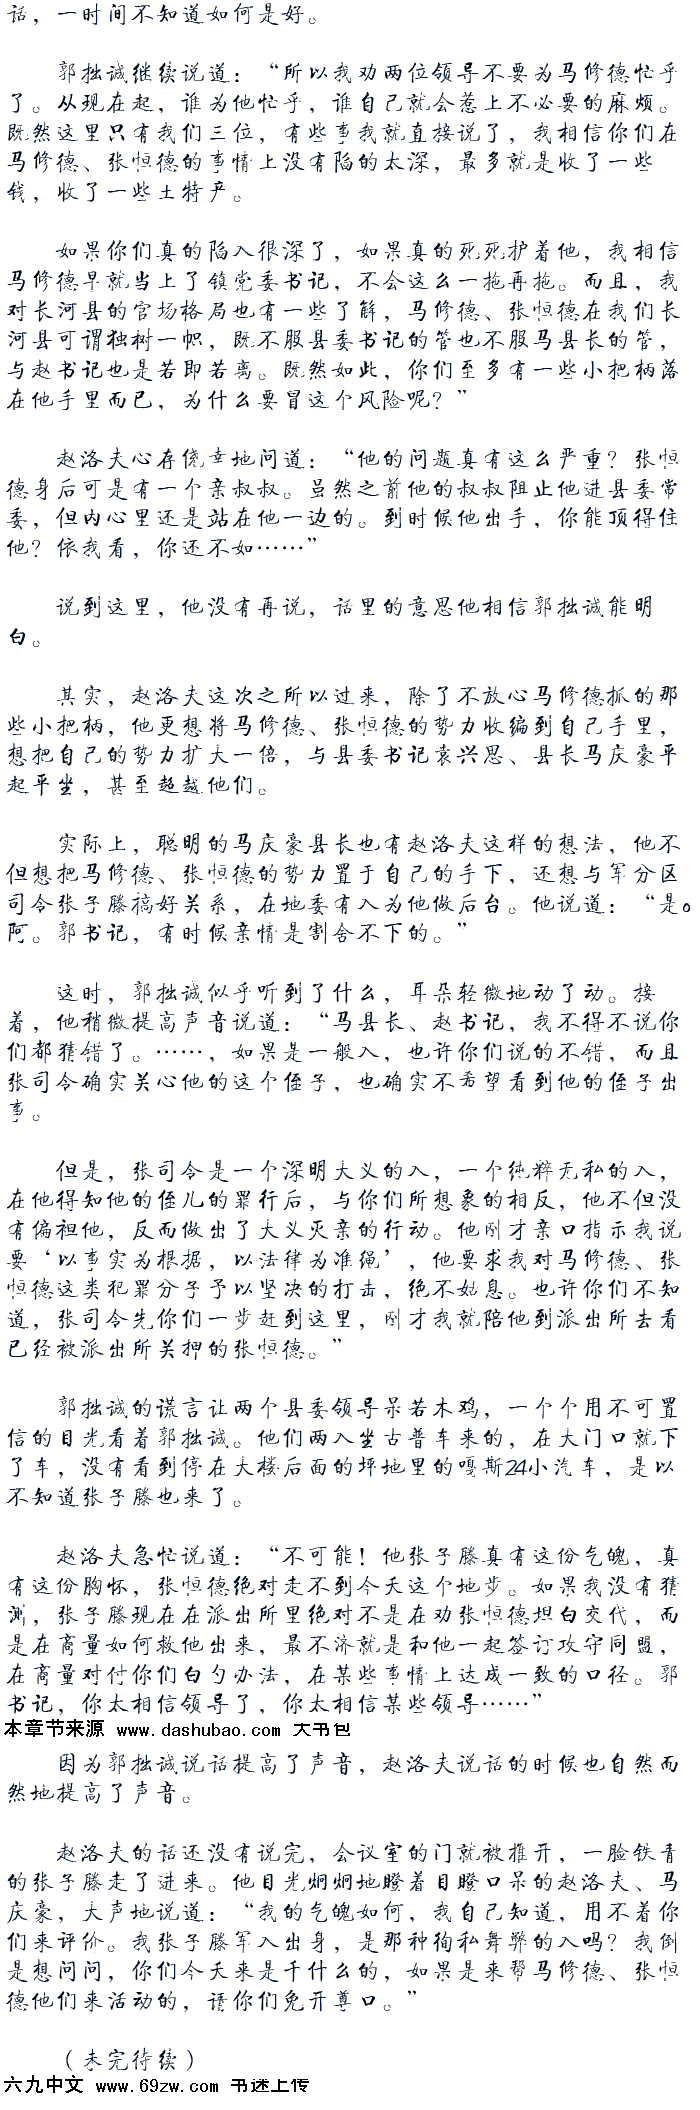 话，一时间不知道如何是好。
郭拙诚继续说道：“所以我劝两位领导不要为马修德忙乎
了。从现在起，谁为他忙乎，谁自己就会惹上不必要的麻烦。
既然这里只有我们三位，有些事我就直接说了，我相信你们在
马修德、张恒德的事情上没有陷的太深，最多就是收了一些
钱，收了一些土特产。
如果你们真的陷入很深了，如果真的死死护着他，我相信
马修德早就当上了镇党委书记，不会这么一拖再拖。而且，我
对长河县的官场格局也有一些了解，马修德、张恒德在我们长
河县可谓独树一帜，既不服县委书记的管也不服马县长的管，
与赵书记也是若即若离。既然如此，你们至多有一些小把柄落
在他手里而已，为什么要冒这个风险呢？”
赵洛夫心存侥幸地问道：“他的问题真有这么严重？张恒
德身后可是有一个亲叔叔。虽然之前他的叔叔阻止他进县委常
委，但内心里还是站在他一边的。到时候他出手，你能顶得住
他？依我看，你还不如……”
说到这里，他没有再说，话里的意思他相信郭拙诚能明
白。
其实，赵洛夫这次之所以过来，除了不放心马修德抓的那
些小把柄，他更想将马修德、张恒德的势力收编到自己手里，
想把自己的势力扩大一倍，与县委书记袁兴思、县长马庆豪平
起平坐，甚至超越他们。
实际上，聪明的马庆豪县长也有赵洛夫这样的想法，他不
但想把马修德、张恒德的势力置于自己的手下，还想与军分区
司令张子滕搞好关系，在地委有人为他做后台。他说道：“是。
阿。郭书记，有时候亲情是割舍不下的。”
这时，郭拙诚似乎听到了什么，耳朵轻微地动了动。接
着，他稍微提高声音说道：“马县长、赵书记，我不得不说你
们都猜错了。……，如果是一般人，也许你们说的不错，而且
张司令确实关心他的这个侄子，也确实不希望看到他的侄子出
事。
但是，张司令是一个深明大义的人，一个纯粹无私的人，
在他得知他的侄儿的罪行后，与你们所想象的相反，他不但没
有偏袒他，反而做出了大义灭亲的行动。他刚才亲口指示我说
要‘以事实为根据，以法律为准绳’，他要求我对马修德、张
恒德这类犯罪分子予以坚决的打击，绝不姑息。也许你们不知
道，张司令先你们一步赶到这里，刚才我就陪他到派出所去看
已经被派出所关押的张恒德。”
郭拙诚的谎言让两个县委领导呆若木鸡，一个个用不可置
信的目光看着郭拙诚。他们两人坐古普车来的，在大门口就下
了车，没有看到停在大楼后面的坪地里的嘎斯24小汽车，是以
不知道张子滕也来了。
赵洛夫急忙说道：“不可能！他张子滕真有这份气魄，真
有这份胸怀，张恒德绝对走不到今天这个地步。如果我没有猜
测，张子滕现在在派出所里绝对不是在劝张恒德坦白交代，而
是在商量如何救他出来，最不济就是和他一起签订攻守同盟，
在商量对付你们白勺办法，在某些事情上达成一致的口径。郭
书记，你太相信领导了，你太相信某些领导……”
本章节来源 www.dashubao.com 大书包
因为郭拙诚说话提高了声音，赵洛夫说话的时候也自然而
然地提高了声音。
赵洛夫的话还没有说完，会议室的门就被推开，一脸铁青
的张子滕走了进来。他目光炯炯地瞪着目瞪口呆的赵洛夫、马
庆豪，大声地说道：“我的气魄如何，我自己知道，用不着你
们来评价。我张子滕军人出身，是那种徇私舞弊的人吗？我倒
是想问问，你们今天来是干什么的，如果是来帮马修德、张恒
德他们来活动的，请你们免开尊口。”
（未完待续）
六九中文 www.69zw.com 书迷上传